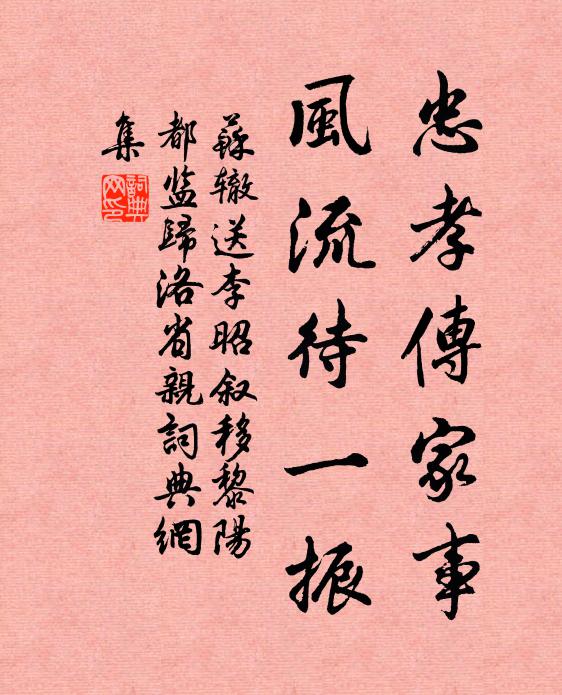 忠孝傳家事
風流待一振
蘇辙送李昭叙移黎陽
都监歸洛省親詞典網
集
詞典
网印